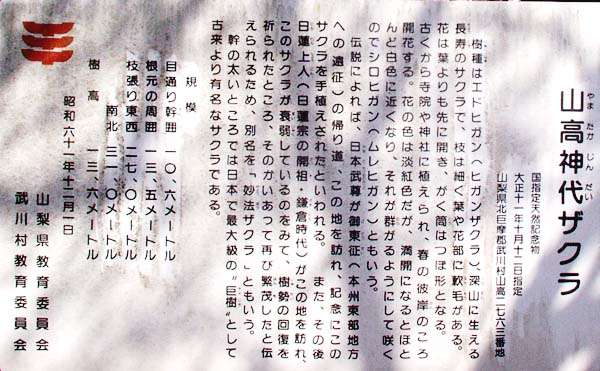 山高神代ザクラ
やま たか じん だい
国指定天然記念物
大正十一年十月十二日指定
山梨県北巨摩郡武川村山高二七六三番地
樹種はエドヒガン（ヒガンザクラ）、深山に生える
長寿のサクラで、枝は細く葉や花部に軟毛がある。
花は葉よりも先に開き、がく筒はつぼ形となる。
古くから寺院や神社に植えられ、春の彼岸のころ
開花する。花の色は淡紅色だが、満開になるとほと
んど白色に近くなり、それが群がるようにして咲く
のでシロヒガン（ムレヒガン）ともいう。
伝説によれば、日本武尊が御東征（本州東部地方
への遠征）の帰り道、この地を訪れ、記念にこの
サクラを手植えされたといわれる。また、その後
日蓮上人（日蓮宗の開祖・鎌倉時代）がこの地を訪れ、
このサクラが衰弱しているのをみて、樹勢の回復を
祈られたところ、そのかいあって再び繁茂したと伝
えられるため、別名を「妙法ザクラ」ともいう。
幹の太いところでは日本で最大級の“巨樹”として
古来より有名なサクラである。
規模
目通り幹囲 一〇、六メートル
根元の周囲 一三、五メートル
枝張り東西 二七、〇メートル
南北 三一、〇メートル
樹高 一三、六メートル
昭和六十一年十二月一日
山梨県教育委員会
武川村教育委員会